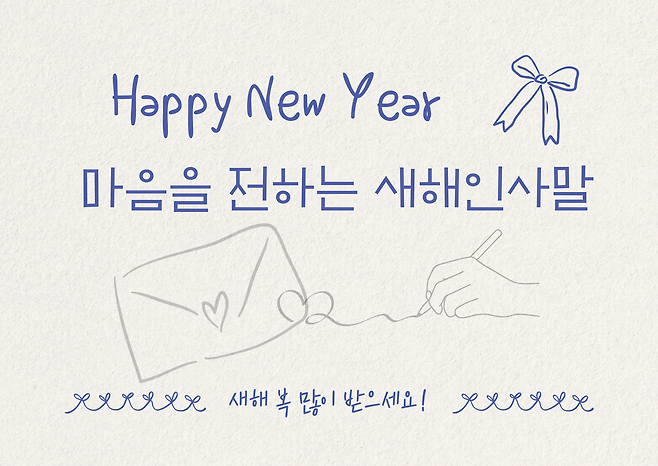 Happy New Year
마음을 전하는 새해인사말
새해 복 많이 받으세요!